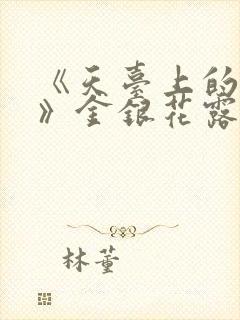 《天臺上的
》金銀花露
林董